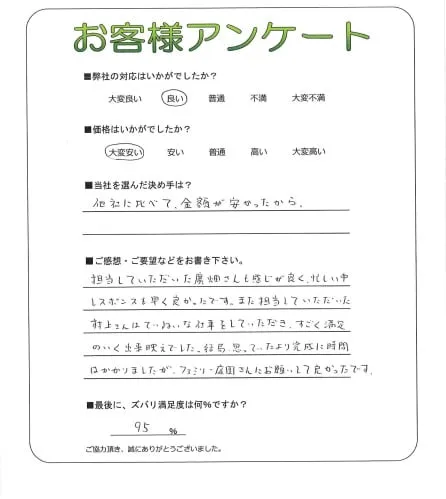 お客様アンケート
■弊社の対応はいかがでしたか？
大変良い 良い 普通 不満 大変不満
■価格はいかがでしたか？
大変安い 安い 普通 高い 大変高い
■当社を選んだ決め手は？
他社に比べて、金額が安かったから。
■ご感想・ご要望などをお書き下さい。
担当していただいた廣畑さんも感じが良く、忙しい中
レスポンスも早く良かったです。また担当していただいた
村上さんはていねいな仕事をしていただき、すごく満足
のいく出来映えでした。結局思っていたより完成に時間
はかかりましたが、ファミリー庭園さんにお願いして良かったです。
■最後に、ズバリ満足度は何%ですか？
95 %
ご協力頂き、誠にありがとうございました。